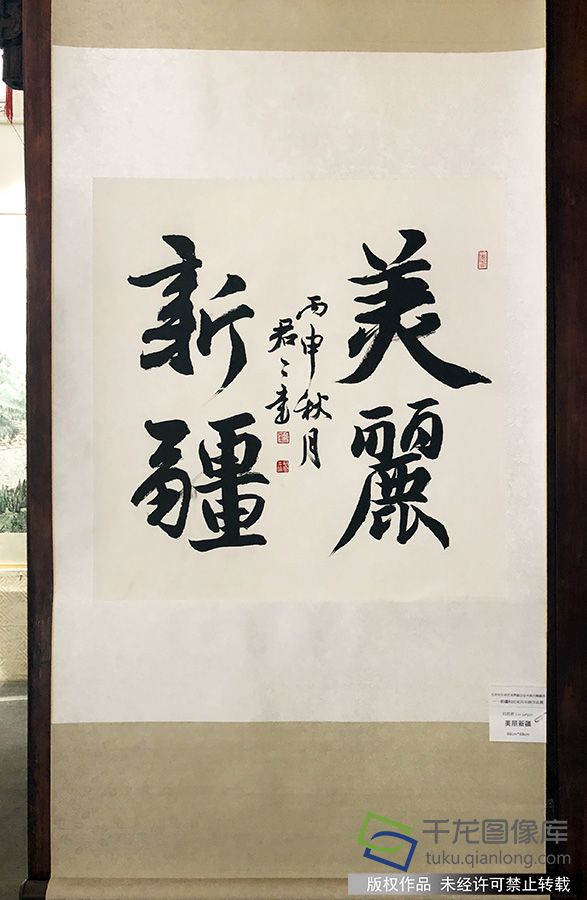 美麗
新疆
丙申秋月
君之書
美丽新疆
68cm*68cm
千龙图像库
tuku.qianlong.com
版权作品 未经许可禁止转载